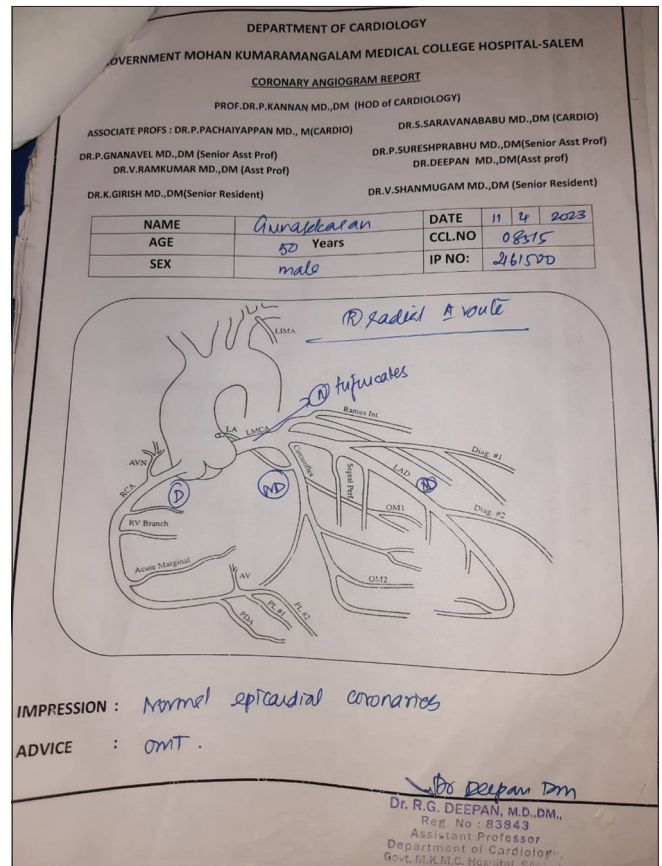 DEPARTMENT OF CARDIOLOGY
OVERNMENT MOHAN KUMARAMANGALAM MEDICAL COLLEGE HOSPITAL-SALEM
CORONARY ANGIOGRAM REPORT
PROF.DR.P.KANNAN MD.,DM (HOD of CARDIOLOGY)
ASSOCIATE PROFS : DR.P.PACHAIYAPPAN MD., M(CARDIO) DR.S.SARAVANABABU MD.,DM (CARDIO)
DR.P.GNANAVEL MD.,DM (Senior Asst Prof) DR.P.SURESHPRABHU MD.,DM(Senior Asst Prof)
DR.V.RAMKUMAR MD.,DM (Asst Prof) DR.DEEPAN MD.,DM(Asst prof)
DR.K.GIRISH MD.,DM(Senior Resident) DR.V.SHANMUGAM MD.,DM (Senior Resident)
NAME Gunasekaran DATE 11 4 2023
AGE 50 Years CCL.NO 08515
SEX male IP NO: 2161500
(R) radial A route
LIMA
(N) bifurcates
Ramus Int.
LA LMCA
AVN
RCA
Circumflex
Septal Perf.
LAD
Diag. #1
(D)
(ND)
OM1
Diag. #2
RV Branch
Acute Marginal
AV
OM2
PL #1
PL #2
PDA
IMPRESSION : Normal epicardial coronaries
ADVICE : OMT.
Dr Deepan DM
Dr. R.G. DEEPAN, M.D.,DM.,
Reg. No : 83843
Assistant Professor
Department of Cardiology,
Govt. M.K.M.C. Hospital